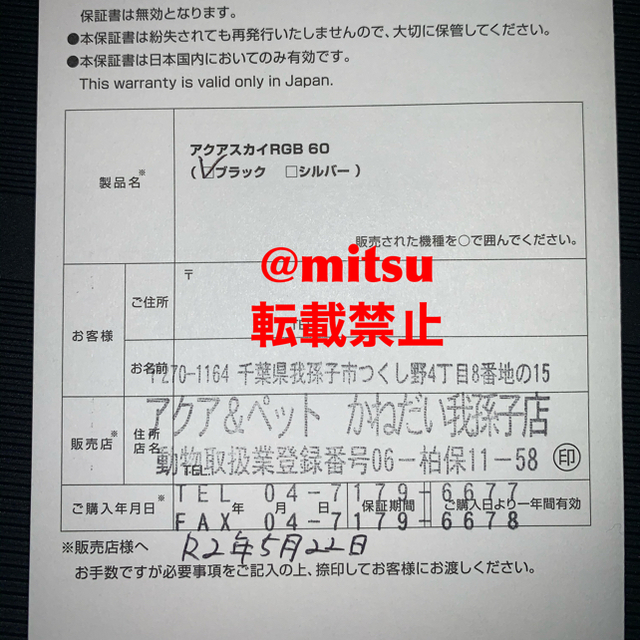 保証書は無効となります。
●本保証書は紛失されても再発行いたしませんので、大切に保管してください。
●本保証書は日本国内においてのみ有効です。
This warranty is valid only in Japan.
製品名※
アクアスカイRGB 60
(☑ブラック □シルバー)
販売された機種を○で囲んでください。
@mitsu
転載禁止
お客様
ご住所
〒
TEL
お名前
〒270-1164 千葉県我孫子市つくし野4丁目8番地の15
販売店※
住所
店名
アクア&ペット かねだい我孫子店
動物取扱業登録番号06-柏保11-58
TEL
印
ご購入年月日※
年 月 日
保証期間
ご購入日より一年間有効
TEL 04-7179-6677
FAX 04-7179-6678
※販売店様へ
R2年5月22日
お手数ですが必要事項をご記入の上、捺印してお客様にお渡しください。